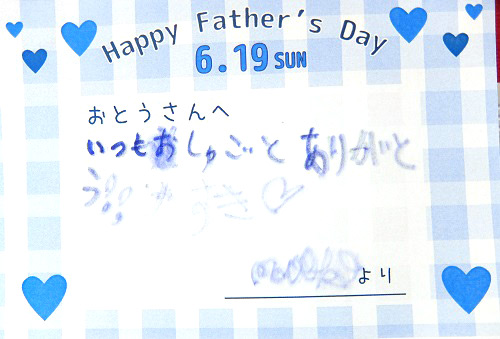 Happy Father's Day
6.19 SUN
おとうさんへ
いつもおしゅごと ありがと
う!!
すき♡
より